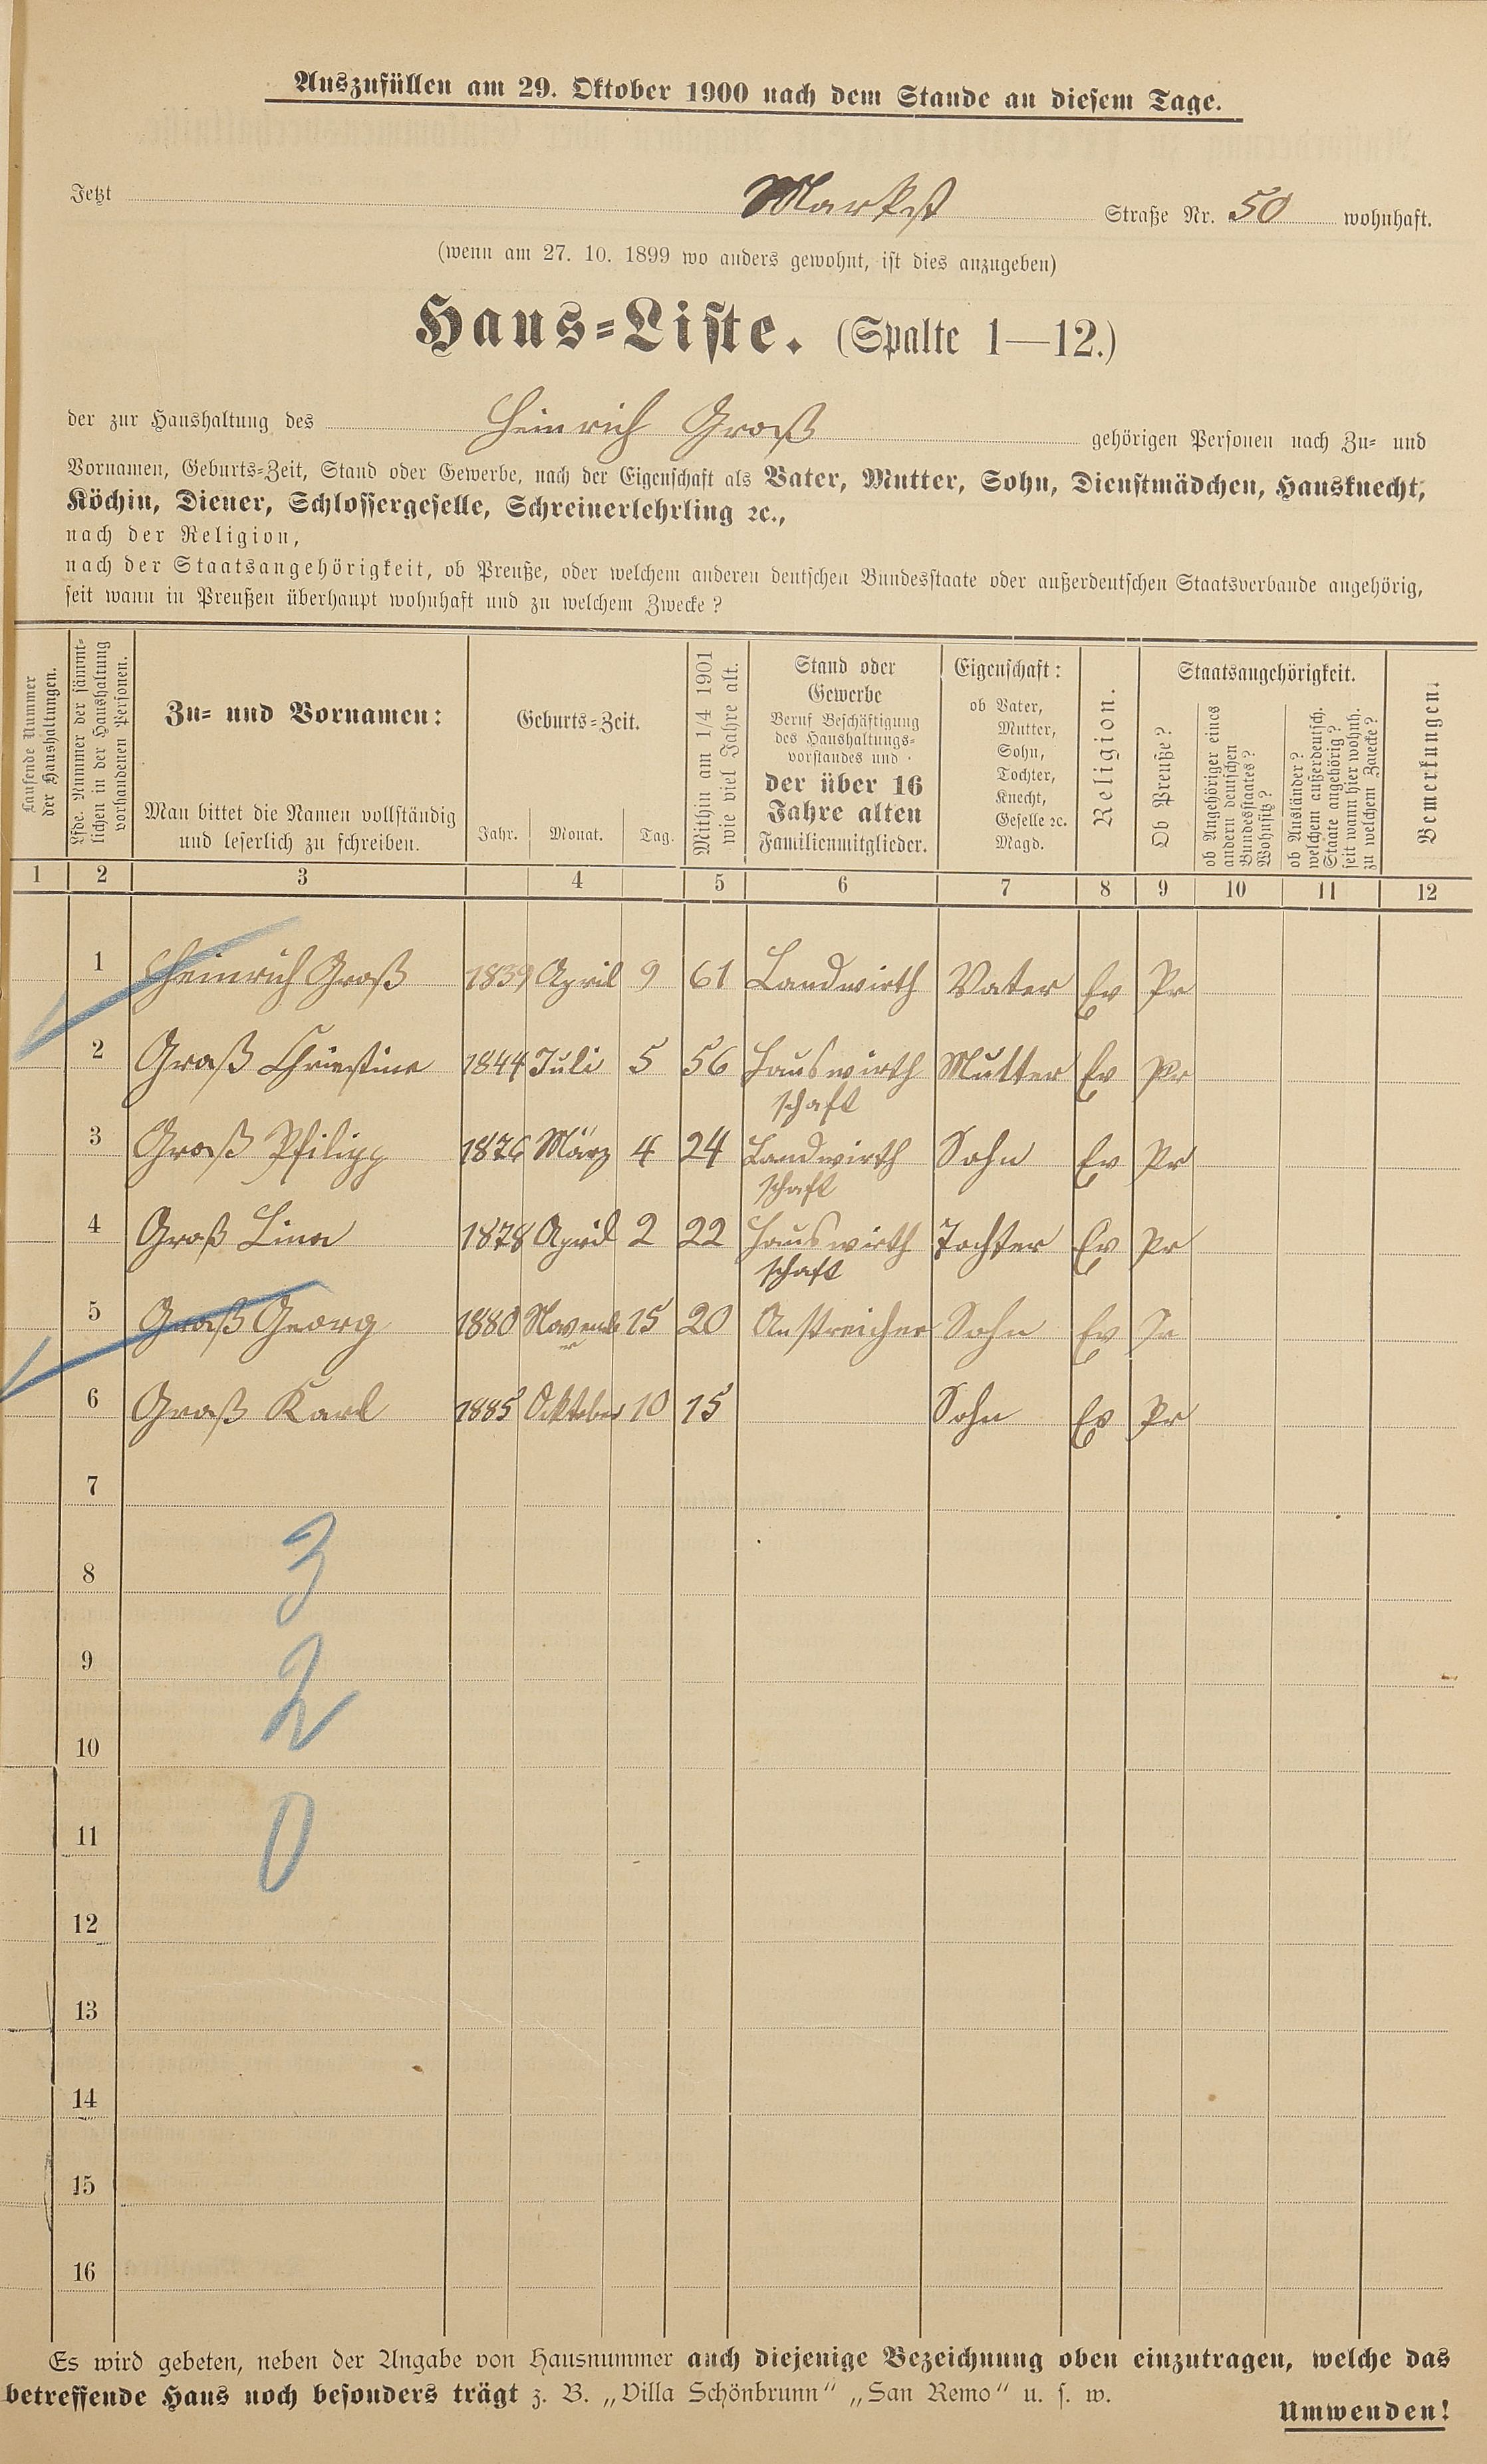 Auszufüllen am 29. Oktober 1900 nach dem Stande an diesem Tage.
Jetzt Marktst Straße Nr. 50 wohnhaft.
(wenn am 27. 10. 1899 wo anders gewohnt, ist dies anzugeben)
Haus=Liste. (Spalte 1—12.)
der zur Haushaltung des Heinrich Groß gehörigen Personen nach Zu= und
Vornamen, Geburts=Zeit, Stand oder Gewerbe, nach der Eigenschaft als Vater, Mutter, Sohn, Dienstmädchen, Hausknecht,
Köchin, Diener, Schlossergeselle, Schreinerlehrling ꝛc.,
nach der Religion,
nach der Staatsangehörigkeit, ob Preuße, oder welchem anderen deutschen Bundesstaate oder außerdeutschen Staatsverbande angehörig,
seit wann in Preußen überhaupt wohnhaft und zu welchem Zwecke?
Laufende Nummer
der Haushaltungen.
Lfde. Nummer der sämmt-
lichen in der Haushaltung
vorhandenen Personen.
Zu= und Vornamen:
Man bittet die Namen vollständig
und leserlich zu schreiben.
Geburts=Zeit.
Jahr. Monat. Tag.
Mithin am 1/4 1901
wie viel Jahre alt.
Stand oder
Gewerbe
Beruf Beschäftigung
des Haushaltungs=
vorstandes und
der über 16
Jahre alten
Familienmitglieder.
Eigenschaft:
ob Vater,
Mutter,
Sohn,
Tochter,
Knecht,
Geselle ꝛc.
Magd.
Religion.
Staatsangehörigkeit.
Ob Preuße?
ob Angehöriger eines
andern deutschen
Bundesstaates?
Wohnsitz?
ob Ausländer?
welchem außerdeutsch.
Staate angehörig?
seit wann hier wohnh.
zu welchem Zwecke?
Bemerkungen.
1 2 3 4 5 6 7 8 9 10 11 12
1 Heinrich Groß 1839 April 9 61 Landwirth Vater Ev Pr
2 Groß Christine 1844 Juli 5 56 Hauswirth Mutter Ev Pr
schaft
3 Groß Philipp 1876 März 4 24 Landwirth Sohn Ev Pr
schaft
4 Groß Lina 1878 April 2 22 Hauswirth Tochter Ev Pr
schaft
5 Groß Georg 1880 Novemb 15 20 Anstreicher Sohn Ev Pr
er
6 Groß Karl 1885 Oktober 10 15 Sohn Ev Pr
7
3
8
9
2
10
11
0
12
13
14
15
16
Es wird gebeten, neben der Angabe von Hausnummer auch diejenige Bezeichnung oben einzutragen, welche das
betreffende Haus noch besonders trägt z. B. „Villa Schönbrunn“ „San Remo“ u. s. w.
Umwenden!